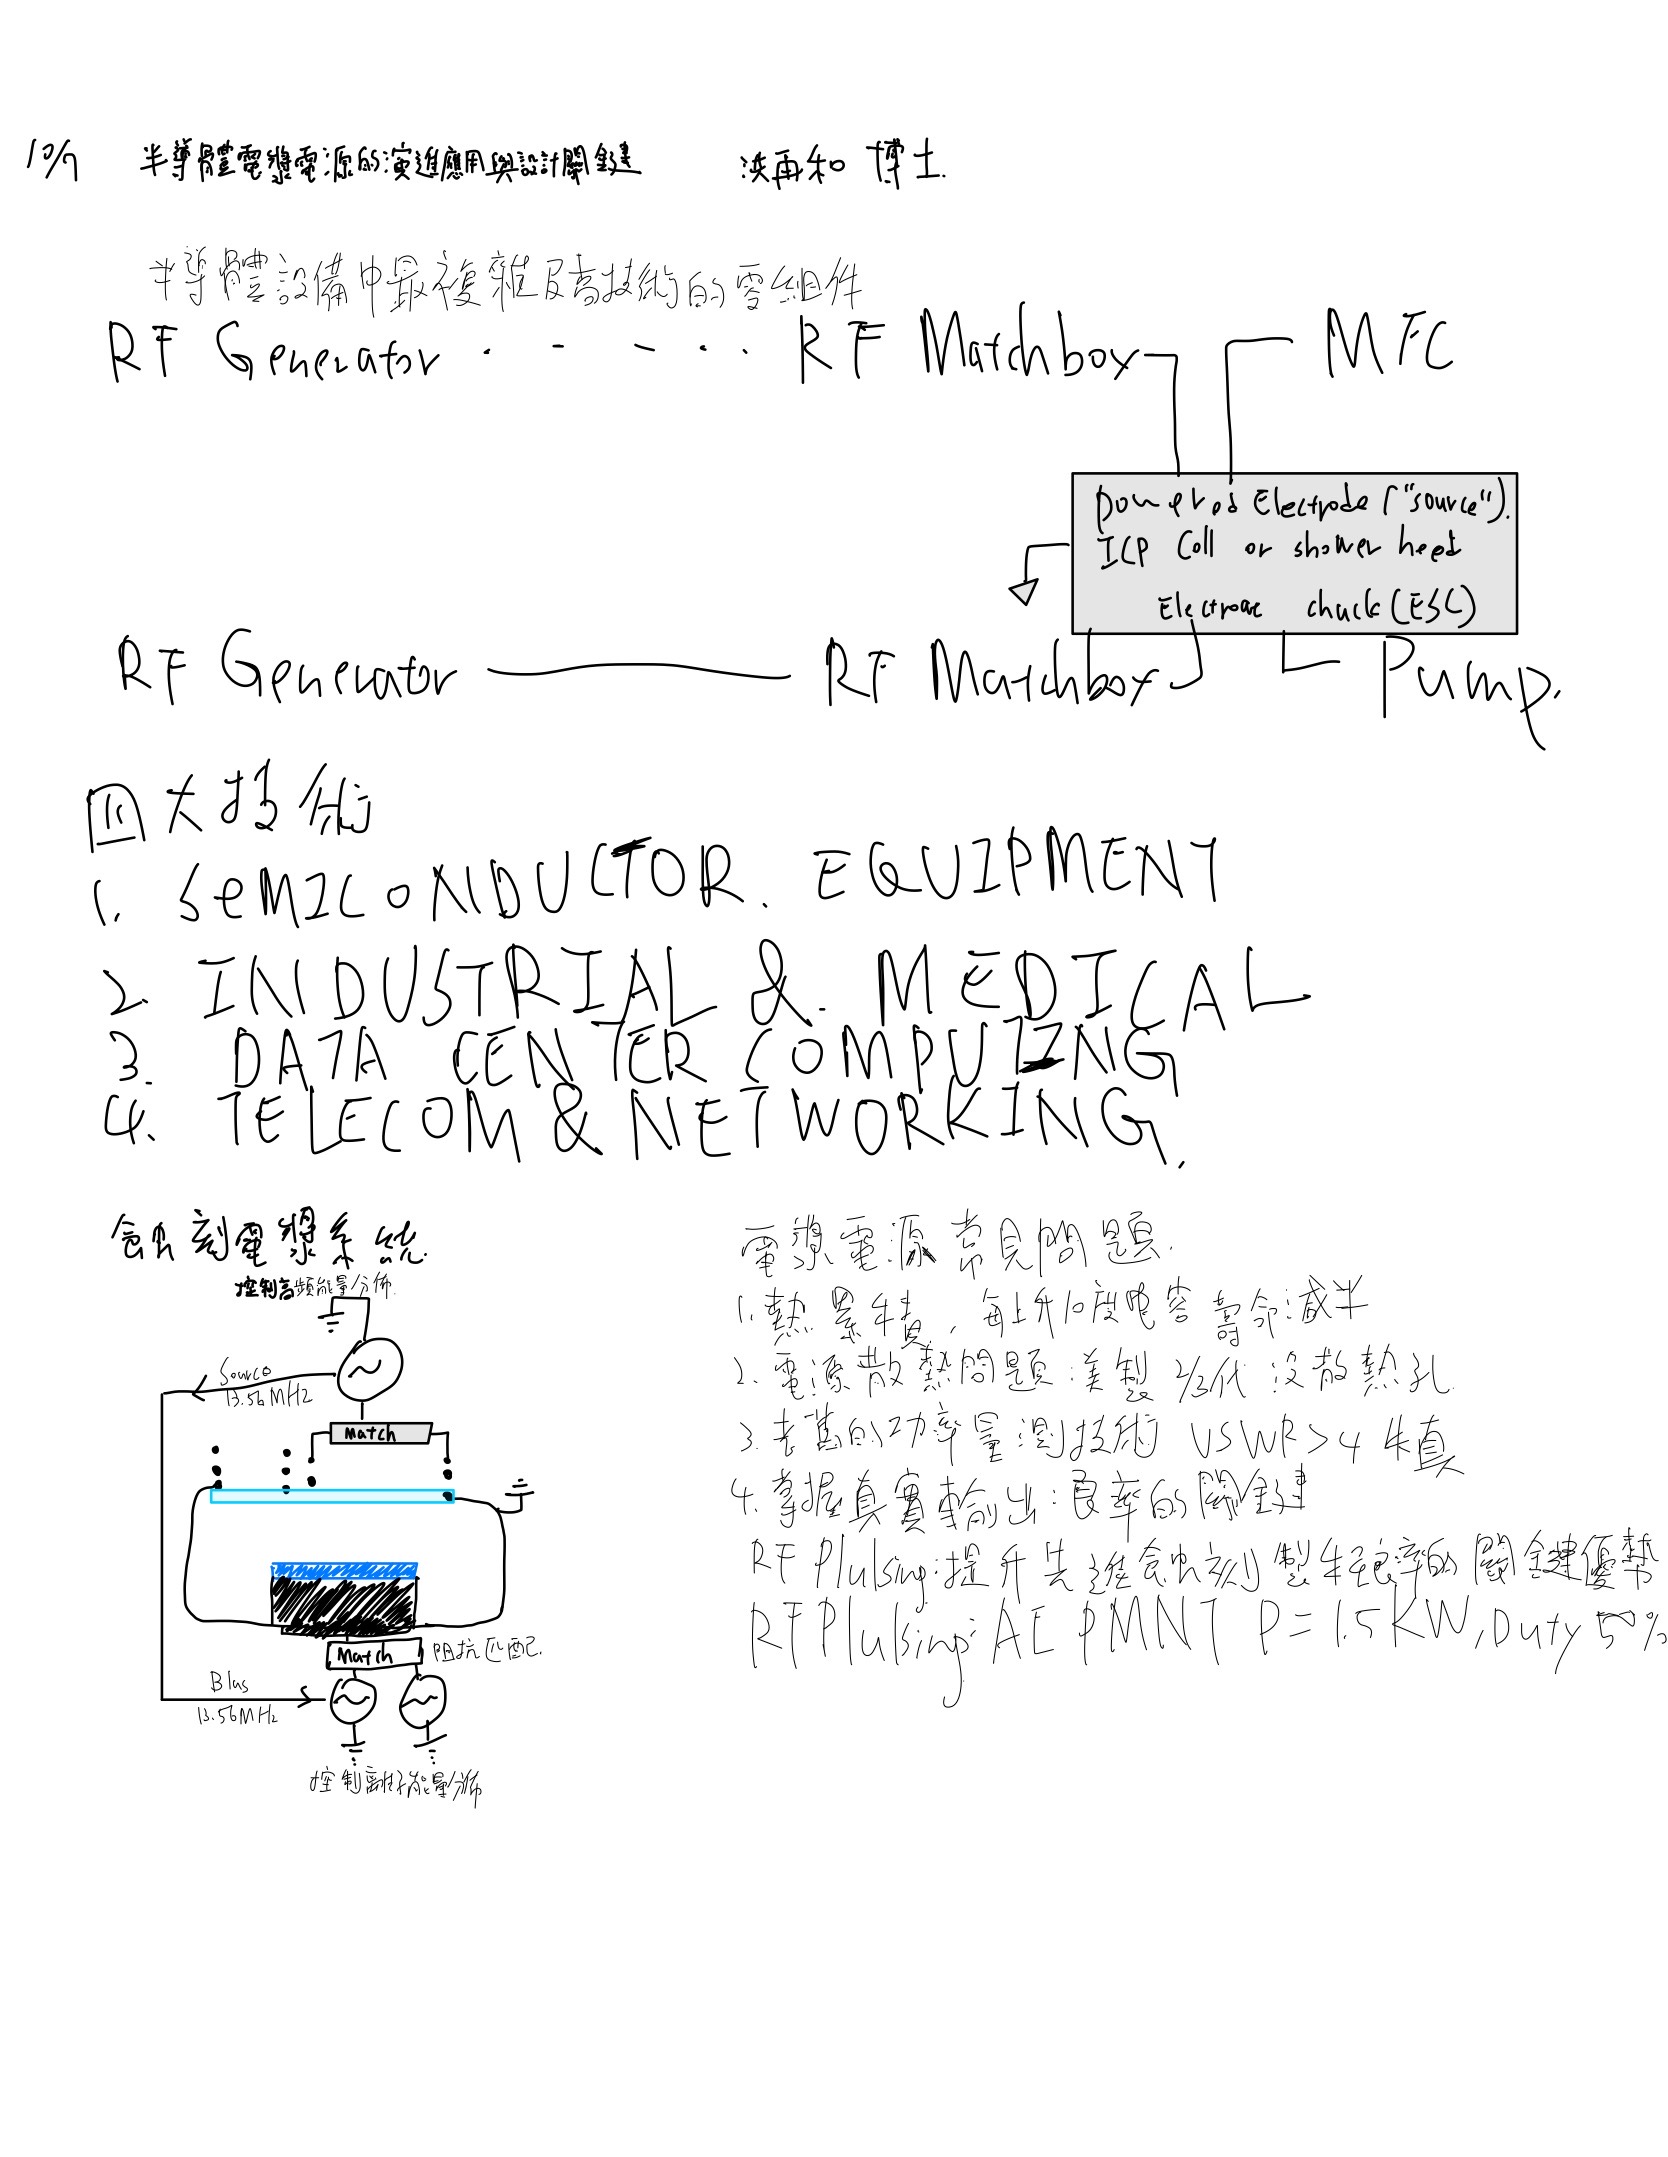 10/7 半導體電漿電源的演進應用與設計關鍵 洪再和 博士.
半導體設備中最複雜及高技術的零組件
RF Generator · - - · · RF Matchbox MFC
Powered Electrode ("source").
ICP Coll or shower heed
Electroac chuck (ESC)
RF Generator RF Matchbox Pump.
四大技術
1. SeMICONDUCTOR. EQUIPMENT
2. INDUSTRIAL &. MEDICAL
3. DATA CENTER COMPUTING
4. TELECOM & NETWORKING.
蝕刻電漿系統.
控制高頻能量分佈.
Source
13.56 MHz
Match
Match 阻抗匹配.
Bias
13.56MHz
控制離子能量分佈
電漿電源常見問題.
1. 熱累積, 每上升10度電容壽命減半
2. 電源散熱問題:美製 2/3代 沒散熱孔
3. 老舊的功率量測技術 VSWR>4 失真
4. 掌握真實輸出:良率的關鍵
RF Plulsing:提升先進蝕刻製程良率的關鍵優勢
RF Plulsing: AE PMNT P=1.5KW, Duty 50%